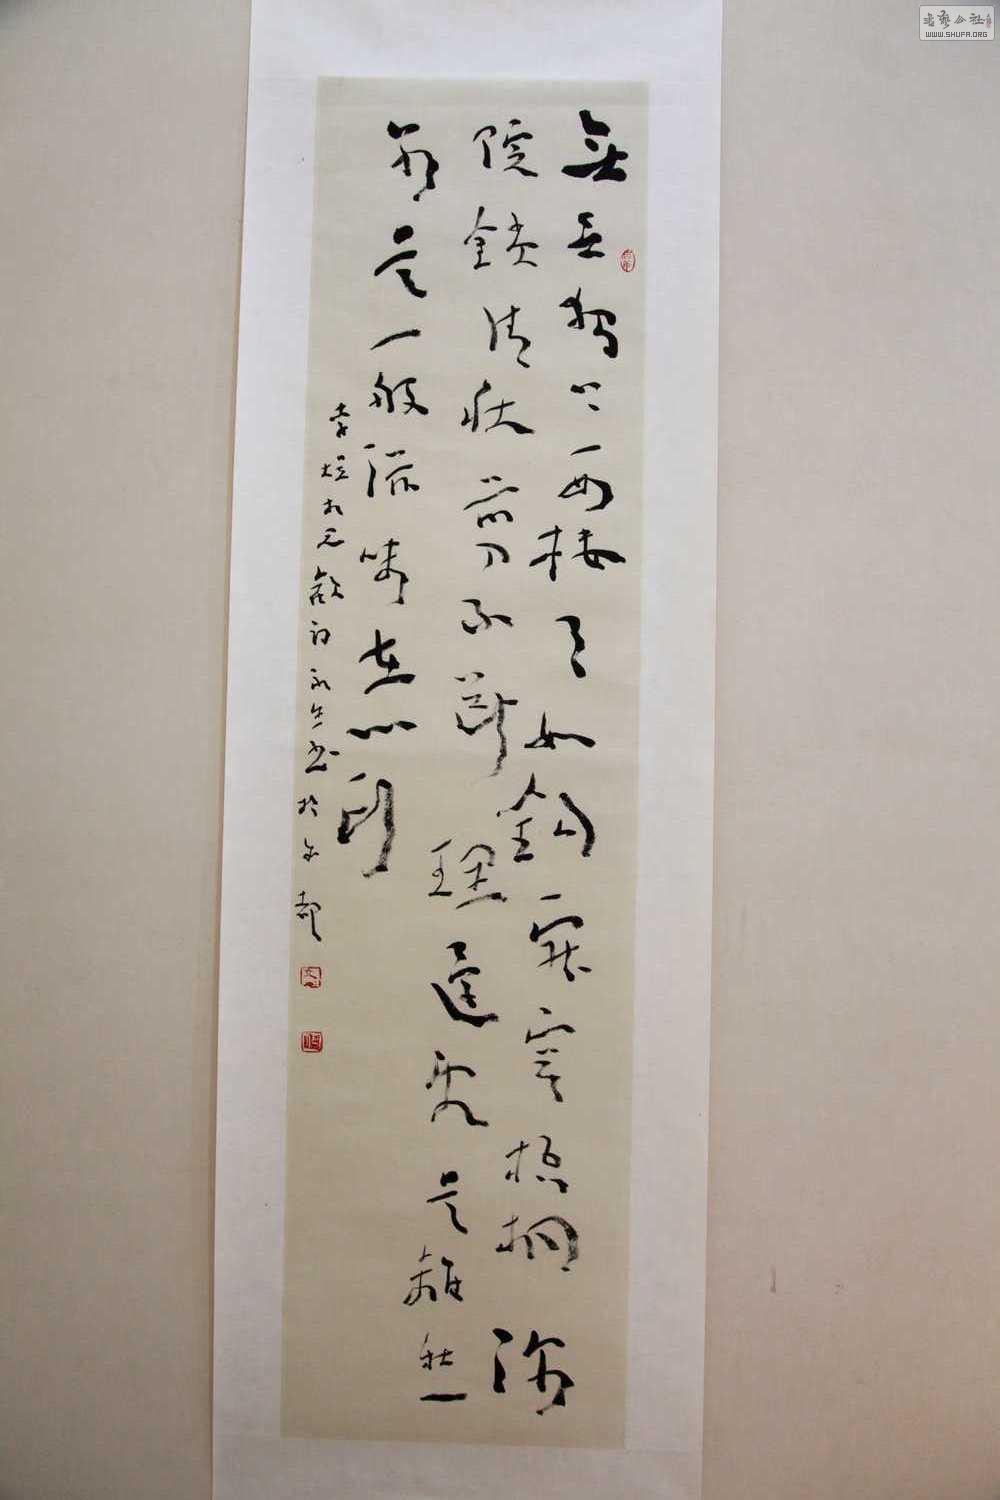 無言獨上西樓月如鉤寂寞梧桐深
院鎖清秋剪不斷理還亂是離愁
別是一般滋味在心頭
李煜相見歡詞永生書於京都
书艺公社
WWW.SHUFA.ORG